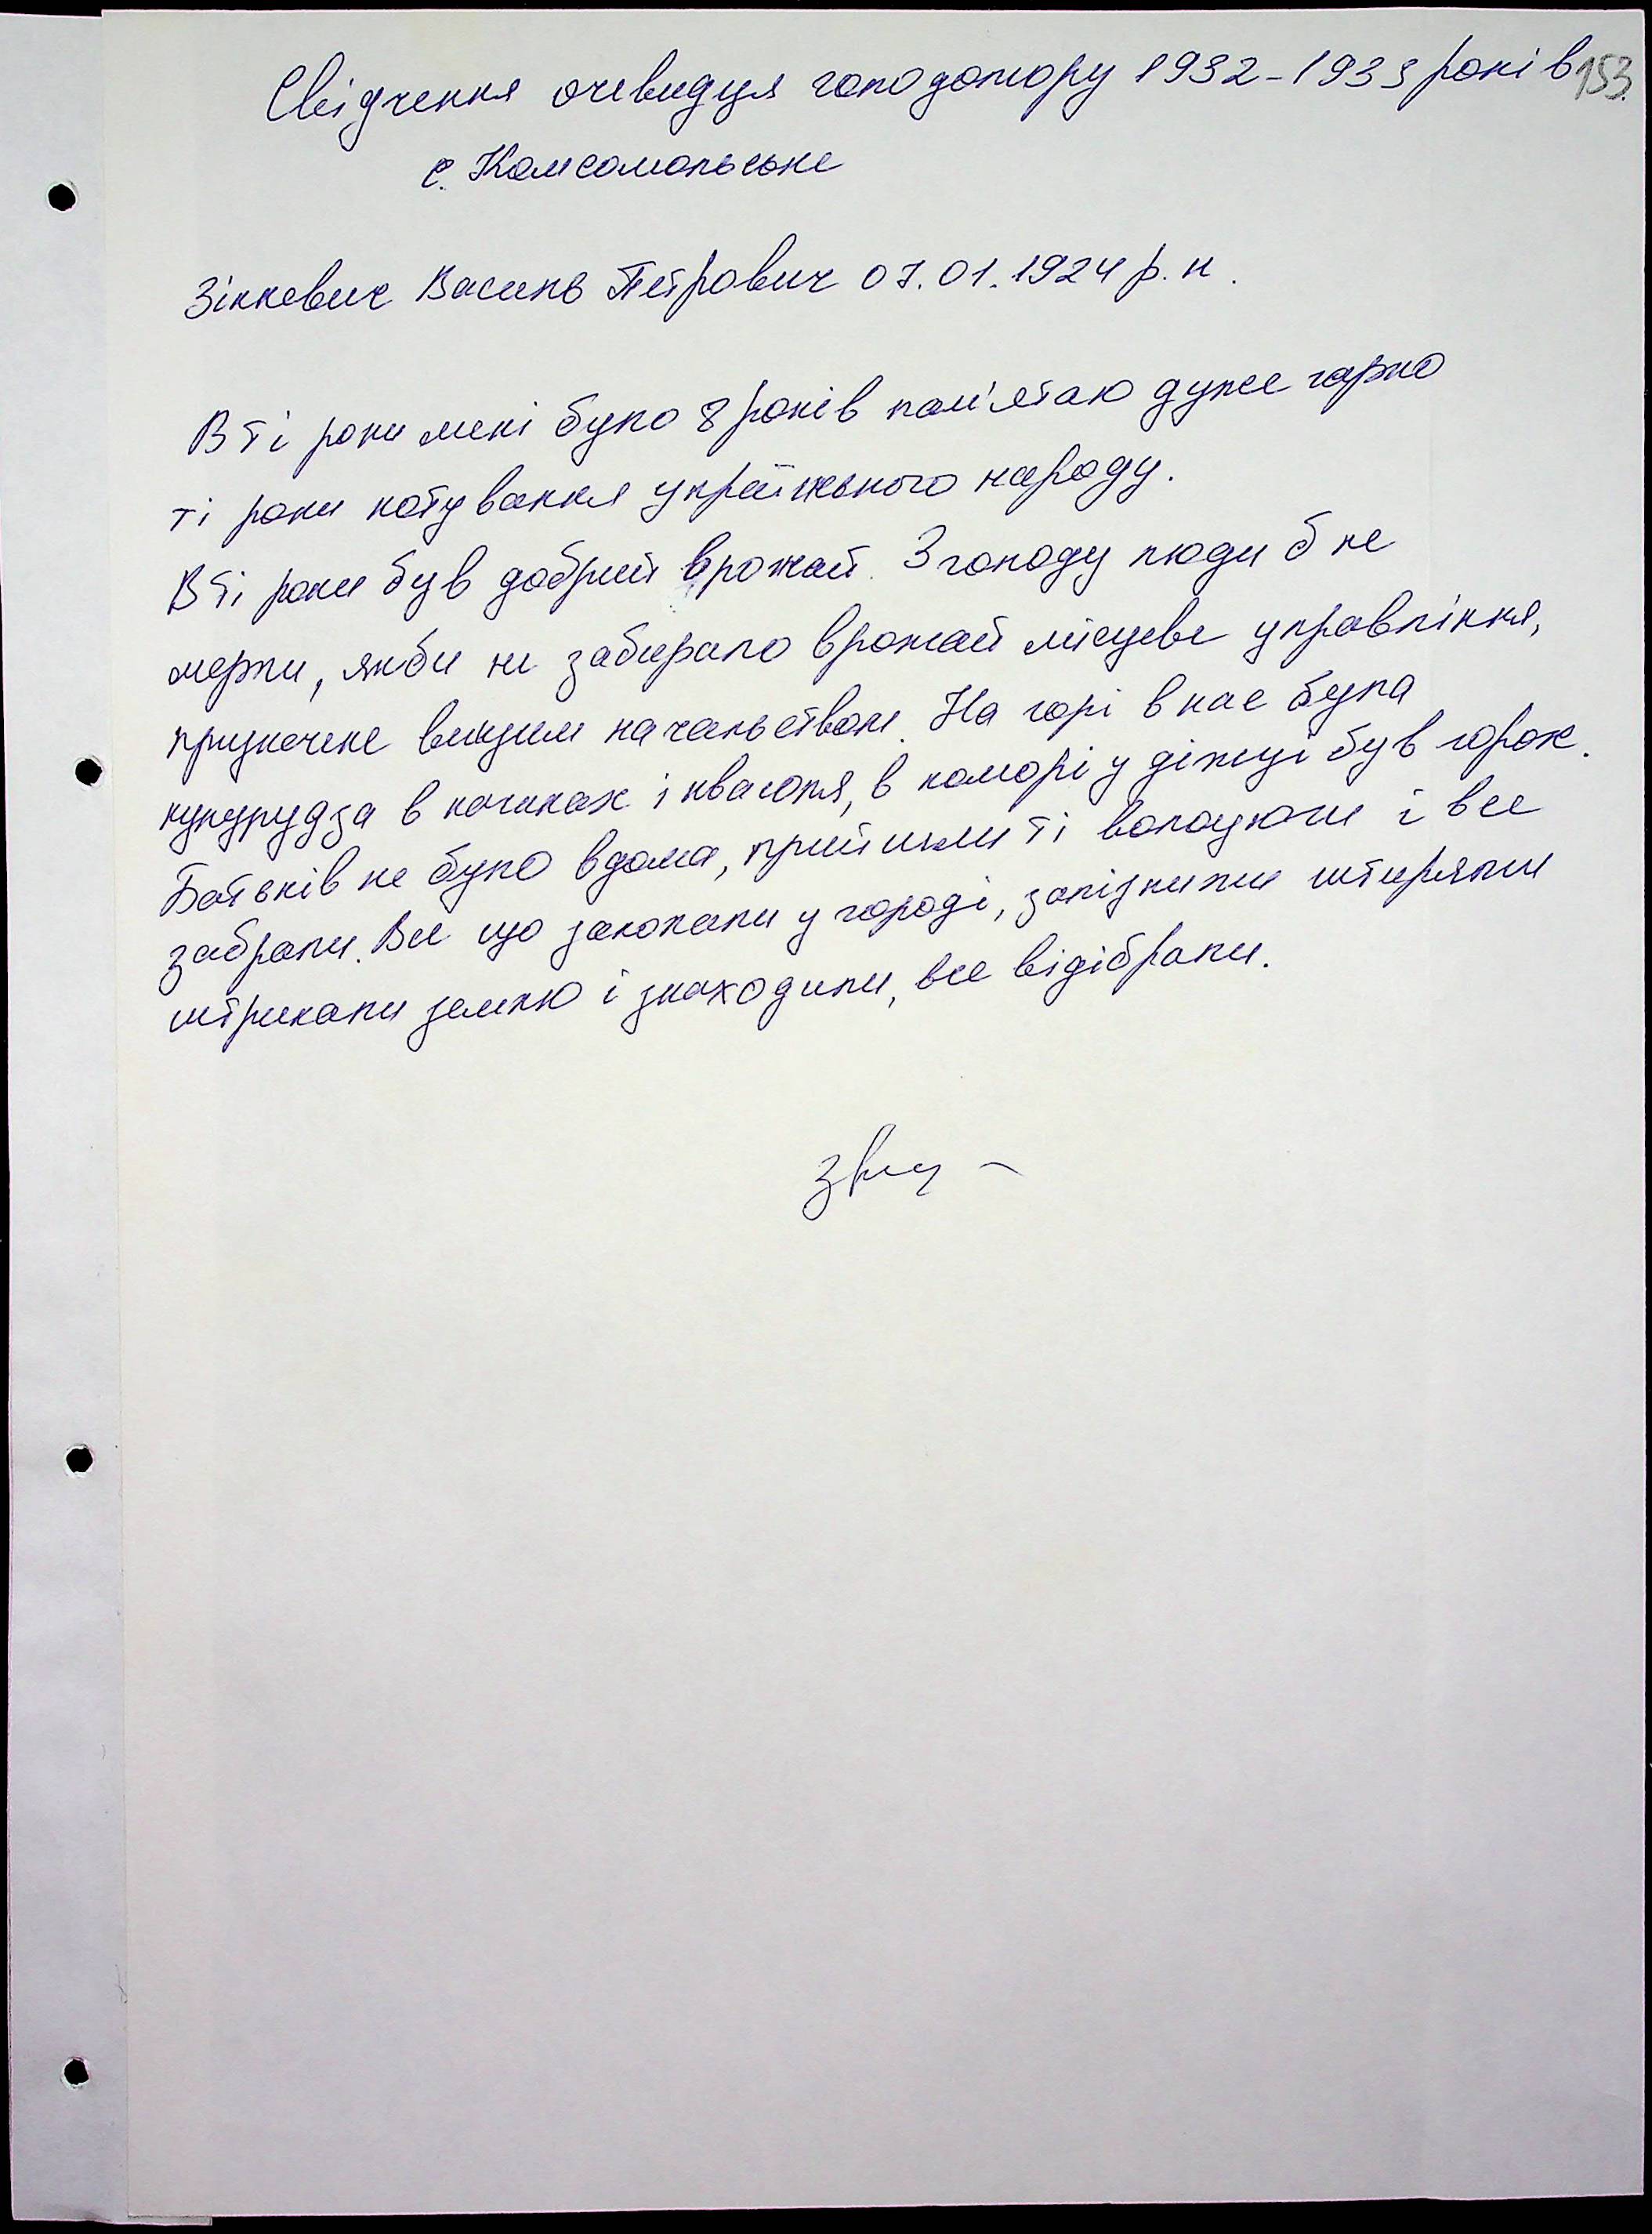 Свідчення очевидця голодомору 1932-1933 років 153.
с. Комсомольське
Зінкевич Василь Петрович 07.01.1924 р. н.
В ті роки мені було 8 років пам'ятаю дуже гарно
ті роки катування українського народу.
В ті роки був добрий врожай. З голоду люди б не
мерли, якби не забирало врожай місцеве управління,
призначене вищим начальством. На горі в нас була
кукурудза в качанах і квасоля, в коморі у діжці був горох.
Батьків не було вдома, прийшли ті волоцюги і все
забрали. Все що закопали у городі, залізними штирями
штрикали землю і знаходили, все відібрали.